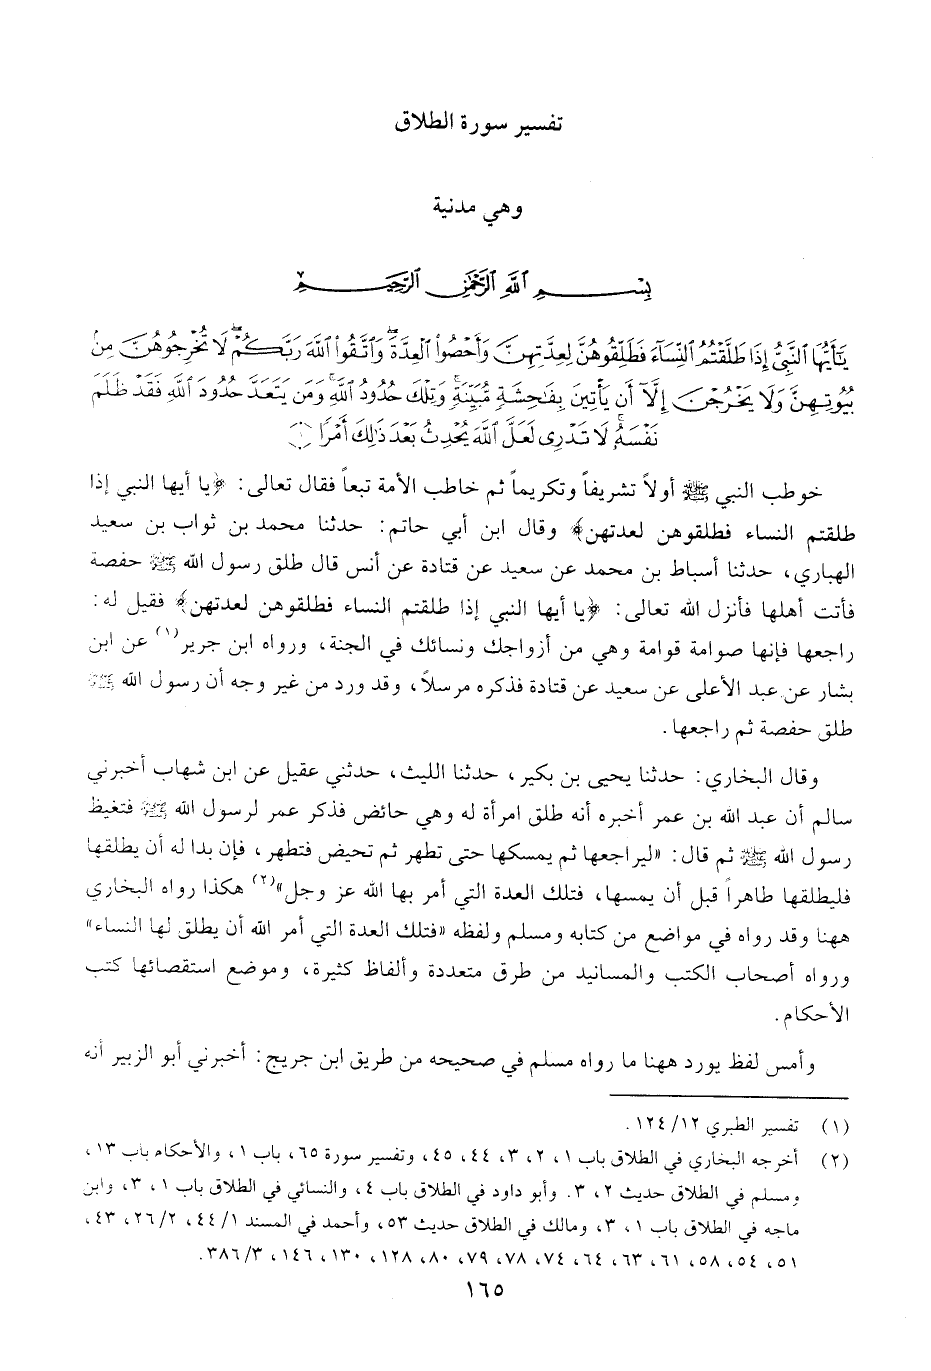 تفسير سورة الطلاق
وهي مدنية
بِسْمِ ٱللَّهِ ٱلرَّحْمَٰنِ ٱلرَّحِيمِ
يَٰٓأَيُّهَا ٱلنَّبِىُّ إِذَا طَلَّقْتُمُ ٱلنِّسَآءَ فَطَلِّقُوهُنَّ لِعِدَّتِهِنَّ وَأَحْصُوا۟ ٱلْعِدَّةَ ۖ وَٱتَّقُوا۟ ٱللَّهَ رَبَّكُمْ ۖ لَا تُخْرِجُوهُنَّ مِنۢ
بُيُوتِهِنَّ وَلَا يَخْرُجْنَ إِلَّآ أَن يَأْتِينَ بِفَٰحِشَةٍ مُّبَيِّنَةٍ ۚ وَتِلْكَ حُدُودُ ٱللَّهِ ۚ وَمَن يَتَعَدَّ حُدُودَ ٱللَّهِ فَقَدْ ظَلَمَ
نَفْسَهُۥ ۚ لَا تَدْرِى لَعَلَّ ٱللَّهَ يُحْدِثُ بَعْدَ ذَٰلِكَ أَمْرًا ﴿١﴾
خوطب النبي ﷺ أولاً تشريفاً وتكريماً ثم خاطب الأمة تبعاً فقال تعالى: ﴿يا أيها النبي إذا
طلقتم النساء فطلقوهن لعدتهن﴾ وقال ابن أبي حاتم: حدثنا محمد بن ثواب بن سعيد
الهباري، حدثنا أسباط بن محمد عن سعيد عن قتادة عن أنس قال طلق رسول الله ﷺ حفصة
فأتت أهلها فأنزل الله تعالى: ﴿يا أيها النبي إذا طلقتم النساء فطلقوهن لعدتهن﴾ فقيل له:
راجعها فإنها صوامة قوامة وهي من أزواجك ونسائك في الجنة، ورواه ابن جرير(١) عن ابن
بشار عن عبد الأعلى عن سعيد عن قتادة فذكره مرسلاً، وقد ورد من غير وجه أن رسول الله ﷺ
طلق حفصة ثم راجعها.
وقال البخاري: حدثنا يحيى بن بكير، حدثنا الليث، حدثني عقيل عن ابن شهاب أخبرني
سالم أن عبد الله بن عمر أخبره أنه طلق امرأة له وهي حائض فذكر عمر لرسول الله ﷺ فتغيظ
رسول الله ﷺ ثم قال: «ليراجعها ثم يمسكها حتى تطهر ثم تحيض فتطهر، فإن بدا له أن يطلقها
فليطلقها طاهراً قبل أن يمسها، فتلك العدة التي أمر بها الله عز وجل»(٢) هكذا رواه البخاري
ههنا وقد رواه في مواضع من كتابه ومسلم ولفظه «فتلك العدة التي أمر الله أن يطلق لها النساء»
ورواه أصحاب الكتب والمسانيد من طرق متعددة وألفاظ كثيرة، وموضع استقصائها كتب
الأحكام.
وأمس لفظ يورد ههنا ما رواه مسلم في صحيحه من طريق ابن جريج: أخبرني أبو الزبير أنه
(١) تفسير الطبري ١٢/ ١٢٤.
(٢) أخرجه البخاري في الطلاق باب ١، ٢، ٣، ٤٤، ٤٥، وتفسير سورة ٦٥، باب ١، والأحكام باب ١٣،
ومسلم في الطلاق حديث ٢، ٣. وأبو داود في الطلاق باب ٤، والنسائي في الطلاق باب ١، ٣، وابن
ماجه في الطلاق باب ١، ٣، ومالك في الطلاق حديث ٥٣، وأحمد في المسند ١/ ٤٤، ٢/ ٢٦، ٤٣،
٥١، ٥٤، ٥٨، ٦١، ٦٣، ٦٤، ٧٤، ٧٨، ٧٩، ٨٠، ١٢٨، ١٣٠، ١٤٦، ٣/ ٣٨٦.
١٦٥